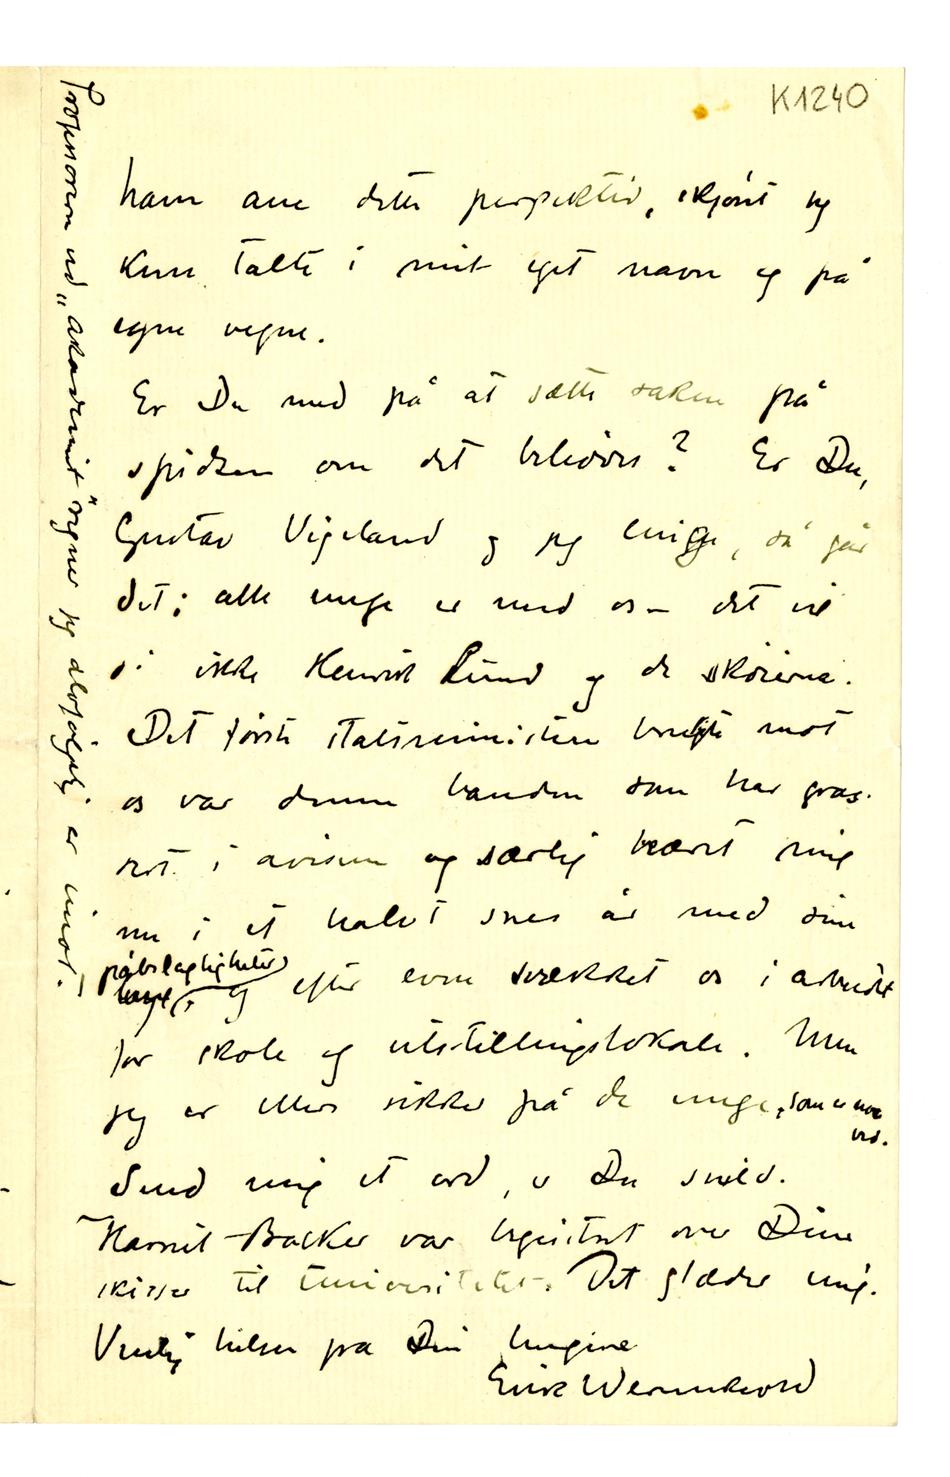 K1240
ham ane dette perspektiv, skjønt jeg
kun talte i mit eget navn og på
egne vegne.
Er Du med på at sætte saken på
spidsen om det behøves? Er Du,
Gustav Vigeland og jeg enige, så går
det; alle unge er med os – det vil
si ikke Henrik Lund og de skøierne.
Det første statsministeren brugte mot
os var denne banden som har gras-
sert i avisene og særlig hædret mig
nu i et halvt snes år med sin
påtrengenhet og efter evne svækket os i arbeidet
for skole og utstillingslokale. Men
jeg er ellers sikker på de unge, som er noe
ved.
Send mig et ord, er Du snild.
Harriet Backer var begeistret over Dine
skisser til Universitetet. Det glæder mig.
Venlig hilsen fra Din hengivne
Erik Werenskiold
Professoren ved "akademiet" regner jeg alofølgelig er imot.